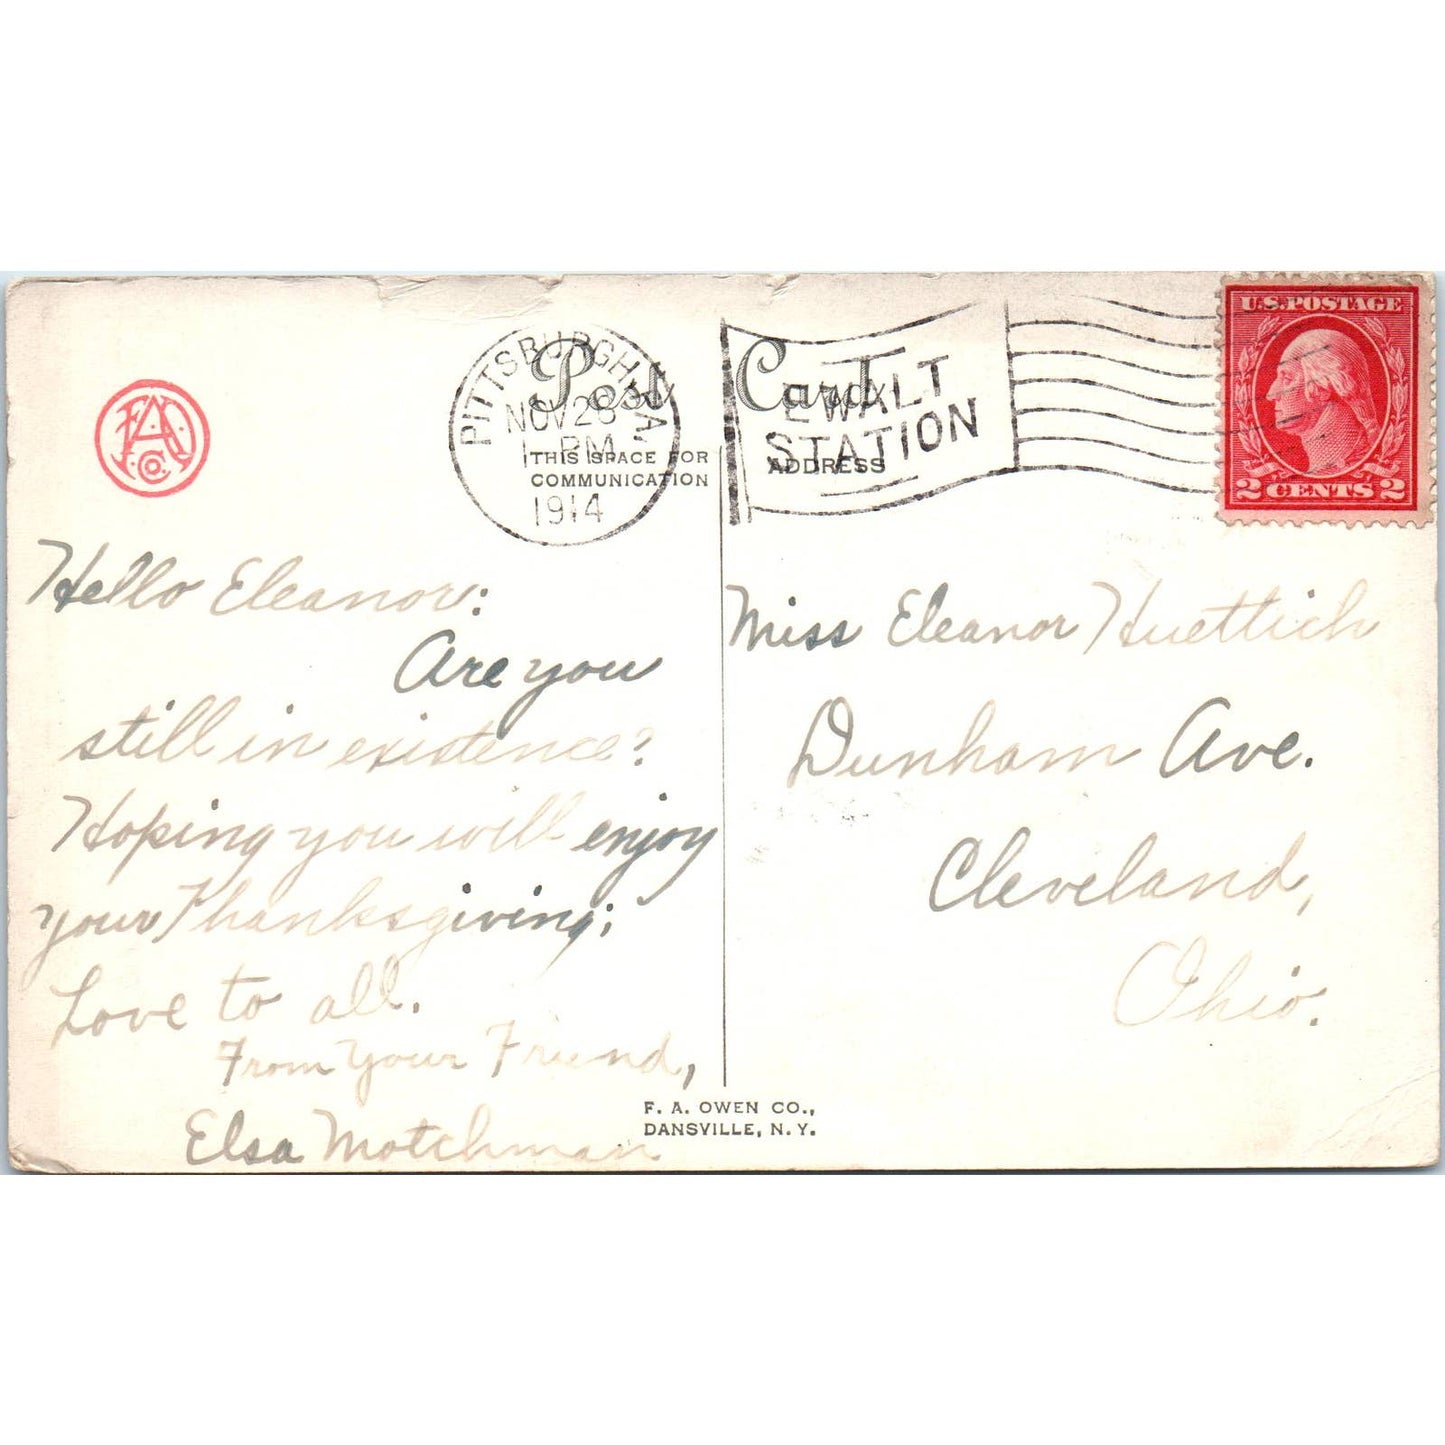 Post Card
PITTSBURGH, PA.
NOV 23
1 PM
1914
EWALT
STATION
U.S. POSTAGE
2 CENTS 2
THIS SPACE FOR
COMMUNICATION
ADDRESS
Hello Eleanor:
Are you
still in existence?
Hoping you will enjoy
your Thanksgiving;
Love to all.
From Your Friend,
Elsa Motchman
Miss Eleanor Huettich
Dunham Ave.
Cleveland,
Ohio.
F. A. OWEN CO.,
DANSVILLE, N. Y.